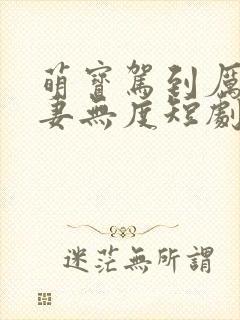 萌寶駕到厲
妻無度短劇
迷茫無所謂